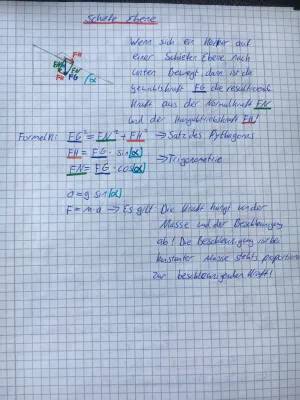 Schiefe Ebene
Wenn sich ein Körper auf
einer Schiefen Ebene nach
unten bewegt dann ist die
Gewichtskraft FG die resultierende
Kraft aus der Normalkraft FN
und der Hangabtriebskraft FH!
FH
FN
FH
FG
α
Formeln: FG² = FN² + FH² ⇒ Satz des Pythagoras
FH = FG · sin(α)
⇒ Trigonometrie
FN = FG · cos(α)
a = g sin(α)
F = m·a ⇒ Es gilt: Die Kraft hängt von der
Masse und der Beschleunigung
ab! Die Beschleunigung ist bei
konstanter Masse stehts proportional
zur beschleunigenden Kraft!